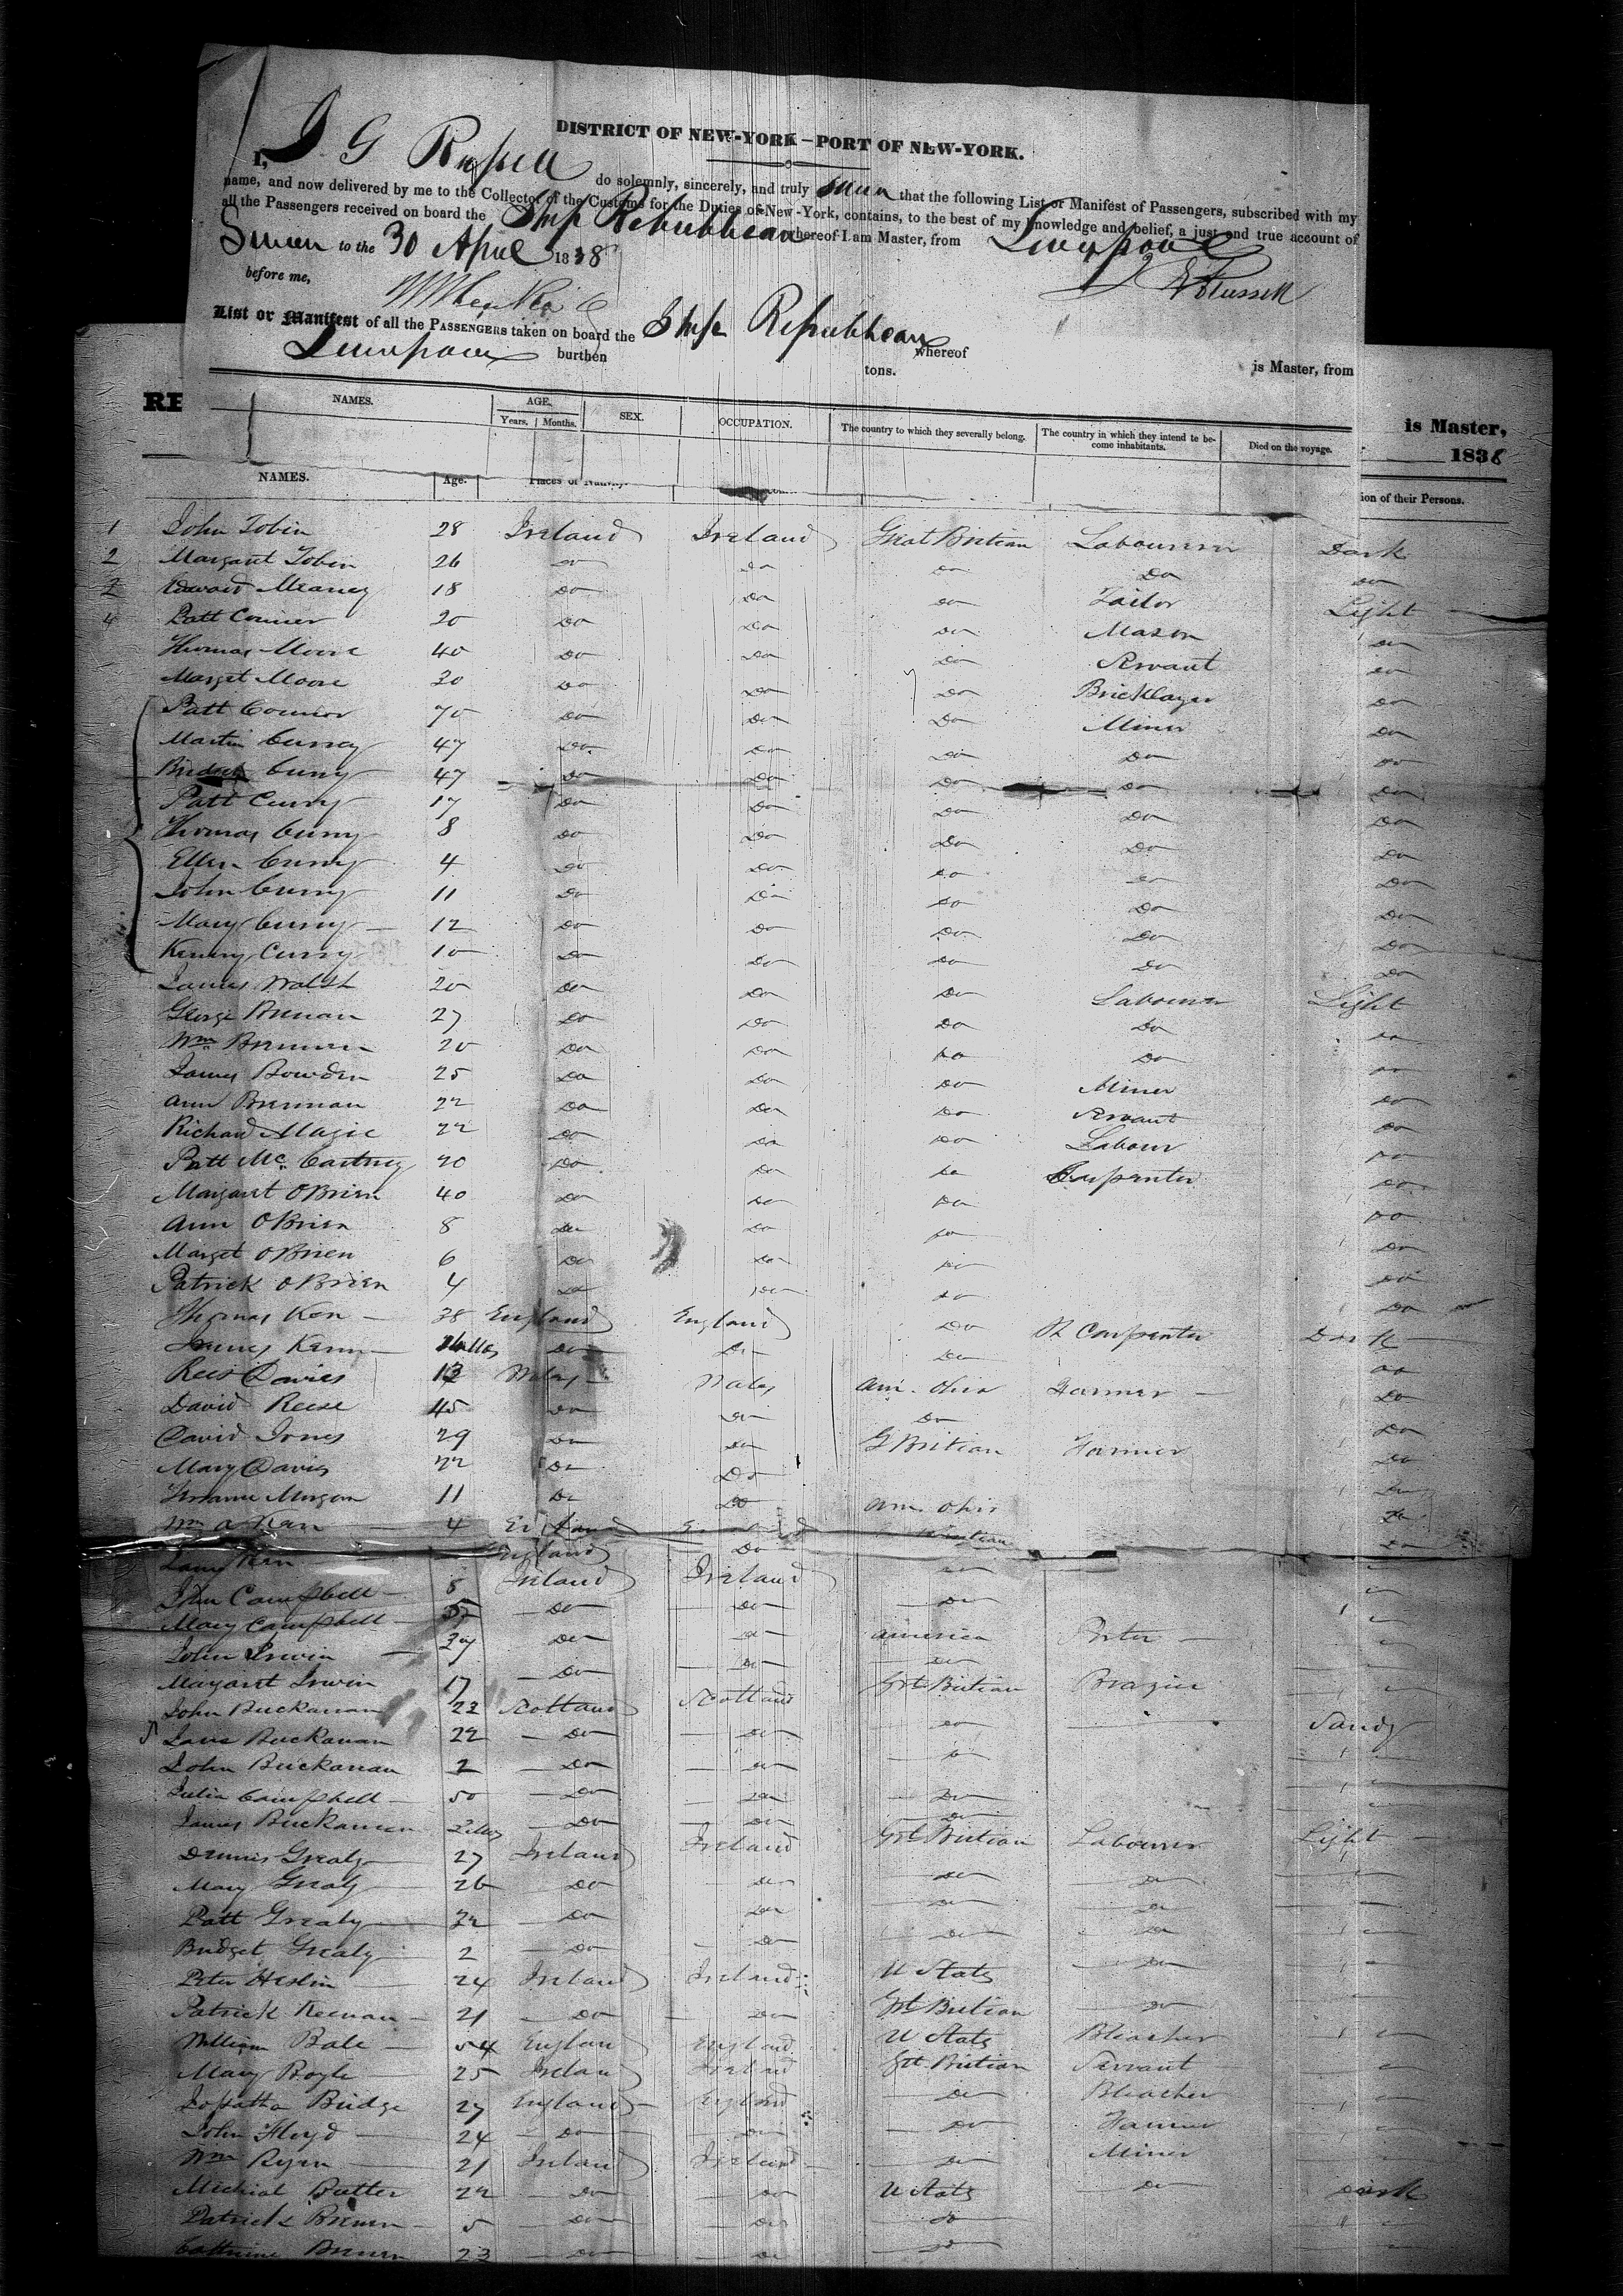 DISTRICT OF NEW-YORK—PORT OF NEW-YORK.
I, J G Russell do solemnly, sincerely, and truly swear that the following List or Manifest of Passengers, subscribed with my
name, and now delivered by me to the Collector of the Customs for the Duties of New-York, contains, to the best of my knowledge and belief, a just and true account of
all the Passengers received on board the Ship Republican whereof I am Master, from Liverpool
Sworn to the 30 April 1838
before me,
Russell
List or Manifest of all the PASSENGERS taken on board the Ship Republican whereof
Liverpool burthen tons. is Master, from
RE is Master,
1838
NAMES. AGE. SEX. OCCUPATION. The country to which they severally belong. The country in which they intend to become inhabitants. Died on the voyage.
Years. Months.
NAMES. Age. Places of Nativity. ion of their Persons.
1 John Tobin 28 Ireland Ireland Great Britian Labourer Dark
2 Margaret Tobin 26 Do Do Do Do Do
Edward Meaney 18 Do Do Do Tailor Light
4 Patt Conner 20 Do Do Do Mason Do
Thomas Moore 40 Do Do Do Servant Do
Marget Moore 20 Do Do Do Bricklayer Do
Patt Connor 70 Do Do Do Miner Do
Martin Curry 47 Do Do Do Do Do
Curry 47 Do Do Do Do Do
Patt Curry 17 Do Do Do Do Do
Thomas Curry 8 Do Do Do Do Do
Ellen Curry 4 Do Do Do Do Do
John Curry 11 Do Do Do Do Do
Mary Curry 12 Do Do Do Do Do
Curry 10 Do Do Do Do Do
James Walsh 20 Do Do Do Labourer Light
George Brenan 27 Do Do Do Do Do
Wm Brennan 20 Do Do Do Do Do
James Bowden 25 Do Do Do Miner Do
Ann Brennan 22 Do Do Do Servant Do
Richard Magie 22 Do Do Do Labour Do
Patt Mc Cartney 20 Do Do Do Carpenter Do
Margaret OBrien 40 Do Do Do Do
Ann OBrien 8 Do Do Do Do
Marget OBrien 6 Do Do Do Do
Patrick OBrien 4 Do Do Do Do
Thomas Ken 38 England England Do Carpenter Dark
Do Do Do Do
Rees Davies 13 Wales Wales Am. Ohio Farmer Do
David Reese 45 Do Do Do Do
David Jones 29 Do Do G Britian Farmer Do
Mary Davis 22 Do Do Do
Morgan 11 Do Do Am. Ohio Do
Wm 4 Do
England Do
John Campbell 8 Ireland Ireland Do
Mary Campbell Do Do Do
John Irwin Do America
Margaret Irwin 17 Do Do Grt Britian Brazier
John Buckanan 23 Scotland Scotland Do Sandy
Buckanan 22 Do Do Do
John Buckanan 2 Do Do Do
Julia Campbell 50 Do Do Do
James Buckanan Do Do Grt Britian Labourer Light
Dennis Grealy 27 Ireland Ireland Do Do
Mary Grealy 26 Do Do Do Do
Patt Grealy 22 Do Do Do Do
Bridget Grealy 2 Do Do Do
Peter Heslin 24 Ireland Ireland U States Do
Patrick Keenan 21 Do Do Grt Britian Do
William Bale 54 England England U States Bleacher
Mary Boyle 25 Ireland Ireland Grt Britian Servant
Bridge 27 England England Do Bleacher
John Floyd 24 Do Do Do Farmer
Wm Ryan 21 Ireland Ireland Do Miner
Michial Butler 22 Do Do U States Do Dark
Patrick 5 Do Do Do
23 Do Do Do